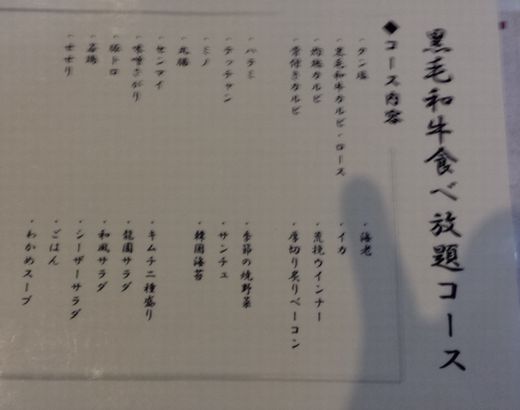 黒毛和牛食べ放題コース
◆コース内容
・タン塩
・黒毛和牛カルビ・ロース
・灼熱カルビ
・骨付きカルビ
・ハラミ
・テッチャン
・ミノ
・丸腸
・センマイ
・味噌さがり
・豚トロ
・若鶏
・せせり
・海老
・イカ
・荒挽ウインナー
・厚切り炙りベーコン
・季節の焼野菜
・サンチュ
・韓国海苔
・キムチ二種盛り
・龍園サラダ
・和風サラダ
・シーザーサラダ
・ごはん
・わかめスープ